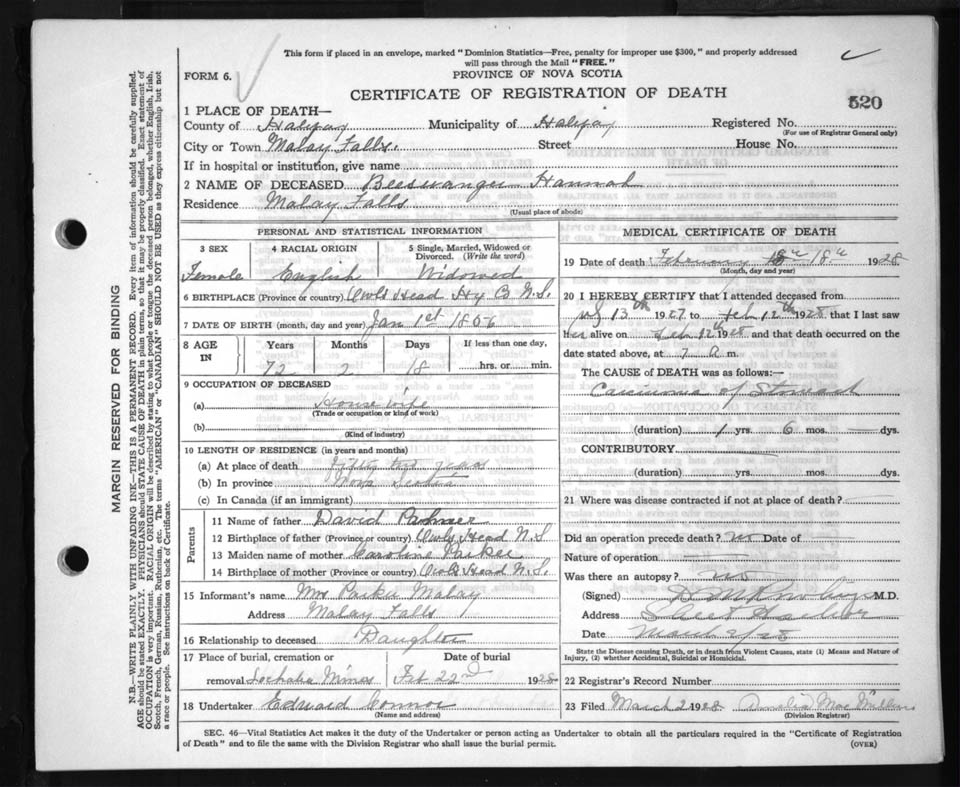 This form if placed in an envelope, marked "Dominion Statistics—Free, penalty for improper use $300," and properly addressed
will pass through the Mail "FREE."
FORM 6.
PROVINCE OF NOVA SCOTIA
CERTIFICATE OF REGISTRATION OF DEATH
520
1 PLACE OF DEATH—
County of Halifax Municipality of Halifax Registered No.
(For use of Registrar General only)
City or Town Malay Falls. Street House No.
If in hospital or institution, give name
2 NAME OF DECEASED Hannah
Residence Malay Falls
(Usual place of abode)
PERSONAL AND STATISTICAL INFORMATION
3 SEX 4 RACIAL ORIGIN 5 Single, Married, Widowed or Divorced. (Write the word)
Female English Widowed
6 BIRTHPLACE (Province or country) Owls Head Hx Co N.S.
7 DATE OF BIRTH (month, day and year) Jan 1st 1856
8 AGE IN Years Months Days If less than one day,
72 2 18 hrs. or min.
9 OCCUPATION OF DECEASED
(a) Housewife
(Trade or occupation or kind of work)
(b)
(Kind of industry)
10 LENGTH OF RESIDENCE (in years and months)
(a) At place of death Fifty two years
(b) In province Nova Scotia
(c) In Canada (if an immigrant)
Parents
11 Name of father David Palmer
12 Birthplace of father (Province or country) Owls Head N.S
13 Maiden name of mother Caroline Parker
14 Birthplace of mother (Province or country) Owls Head N.S.
15 Informant's name Mrs Parker Malay
Address Malay Falls
16 Relationship to deceased Daughter
17 Place of burial, cremation or Date of burial
removal Lochaber Mines Feb 22nd 1928
18 Undertaker Edward Connor
(Name and address)
MEDICAL CERTIFICATE OF DEATH
19 Date of death February 18th 1928
(Month, day and year)
20 I HEREBY CERTIFY that I attended deceased from
13th 1927 to Feb 12th 1928 that I last saw
Her alive on Feb 12th 1928 and that death occurred on the
date stated above, at 7 a m.
The CAUSE of DEATH was as follows:—
Carcinoma of Stomach
(duration) 1 yrs. 6 mos. — dys.
CONTRIBUTORY
(duration) yrs. mos. dys.
21 Where was disease contracted if not at place of death?
Did an operation precede death? no Date of
Nature of operation
Was there an autopsy? no
(Signed) M.D.
Address Sheet Harbor
Date March 2/28
State the Disease causing Death, or in death from Violent Causes, state (1) Means and Nature of
Injury, (2) whether Accidental, Suicidal or Homicidal.
22 Registrar's Record Number
23 Filed March 2 1928 Amelia MacMillan
(Division Registrar)
SEC. 46—Vital Statistics Act makes it the duty of the Undertaker or person acting as Undertaker to obtain all the particulars required in the "Certificate of Registration
of Death" and to file the same with the Division Registrar who shall issue the burial permit. (OVER)
MARGIN RESERVED FOR BINDING
N.B.—WRITE PLAINLY WITH UNFADING INK—THIS IS A PERMANENT RECORD. Every item of information should be carefully supplied.
AGE should be stated EXACTLY. PHYSICIANS should STATE CAUSE OF DEATH in plain terms, so that it may be properly classified. Exact statement of
OCCUPATION is very important. RACIAL ORIGIN will be described by stating to what people or tongue the deceased person belonged, whether English, Irish,
Scotch, French, German, Russian, Ruthenian, etc. The terms "AMERICAN" or "CANADIAN" SHOULD NOT BE USED as they express citizenship but not
a race or people. See instructions on back of Certificate.